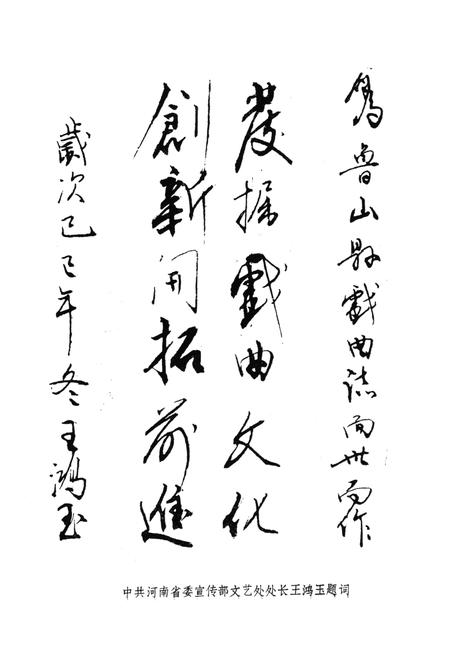 为鲁山县戲曲誌面世而作
發掘戲曲文化
創新开拓前進
歲次己巳年冬王鸿玉
中共河南省委宣传部文艺处处长王鸿玉题词